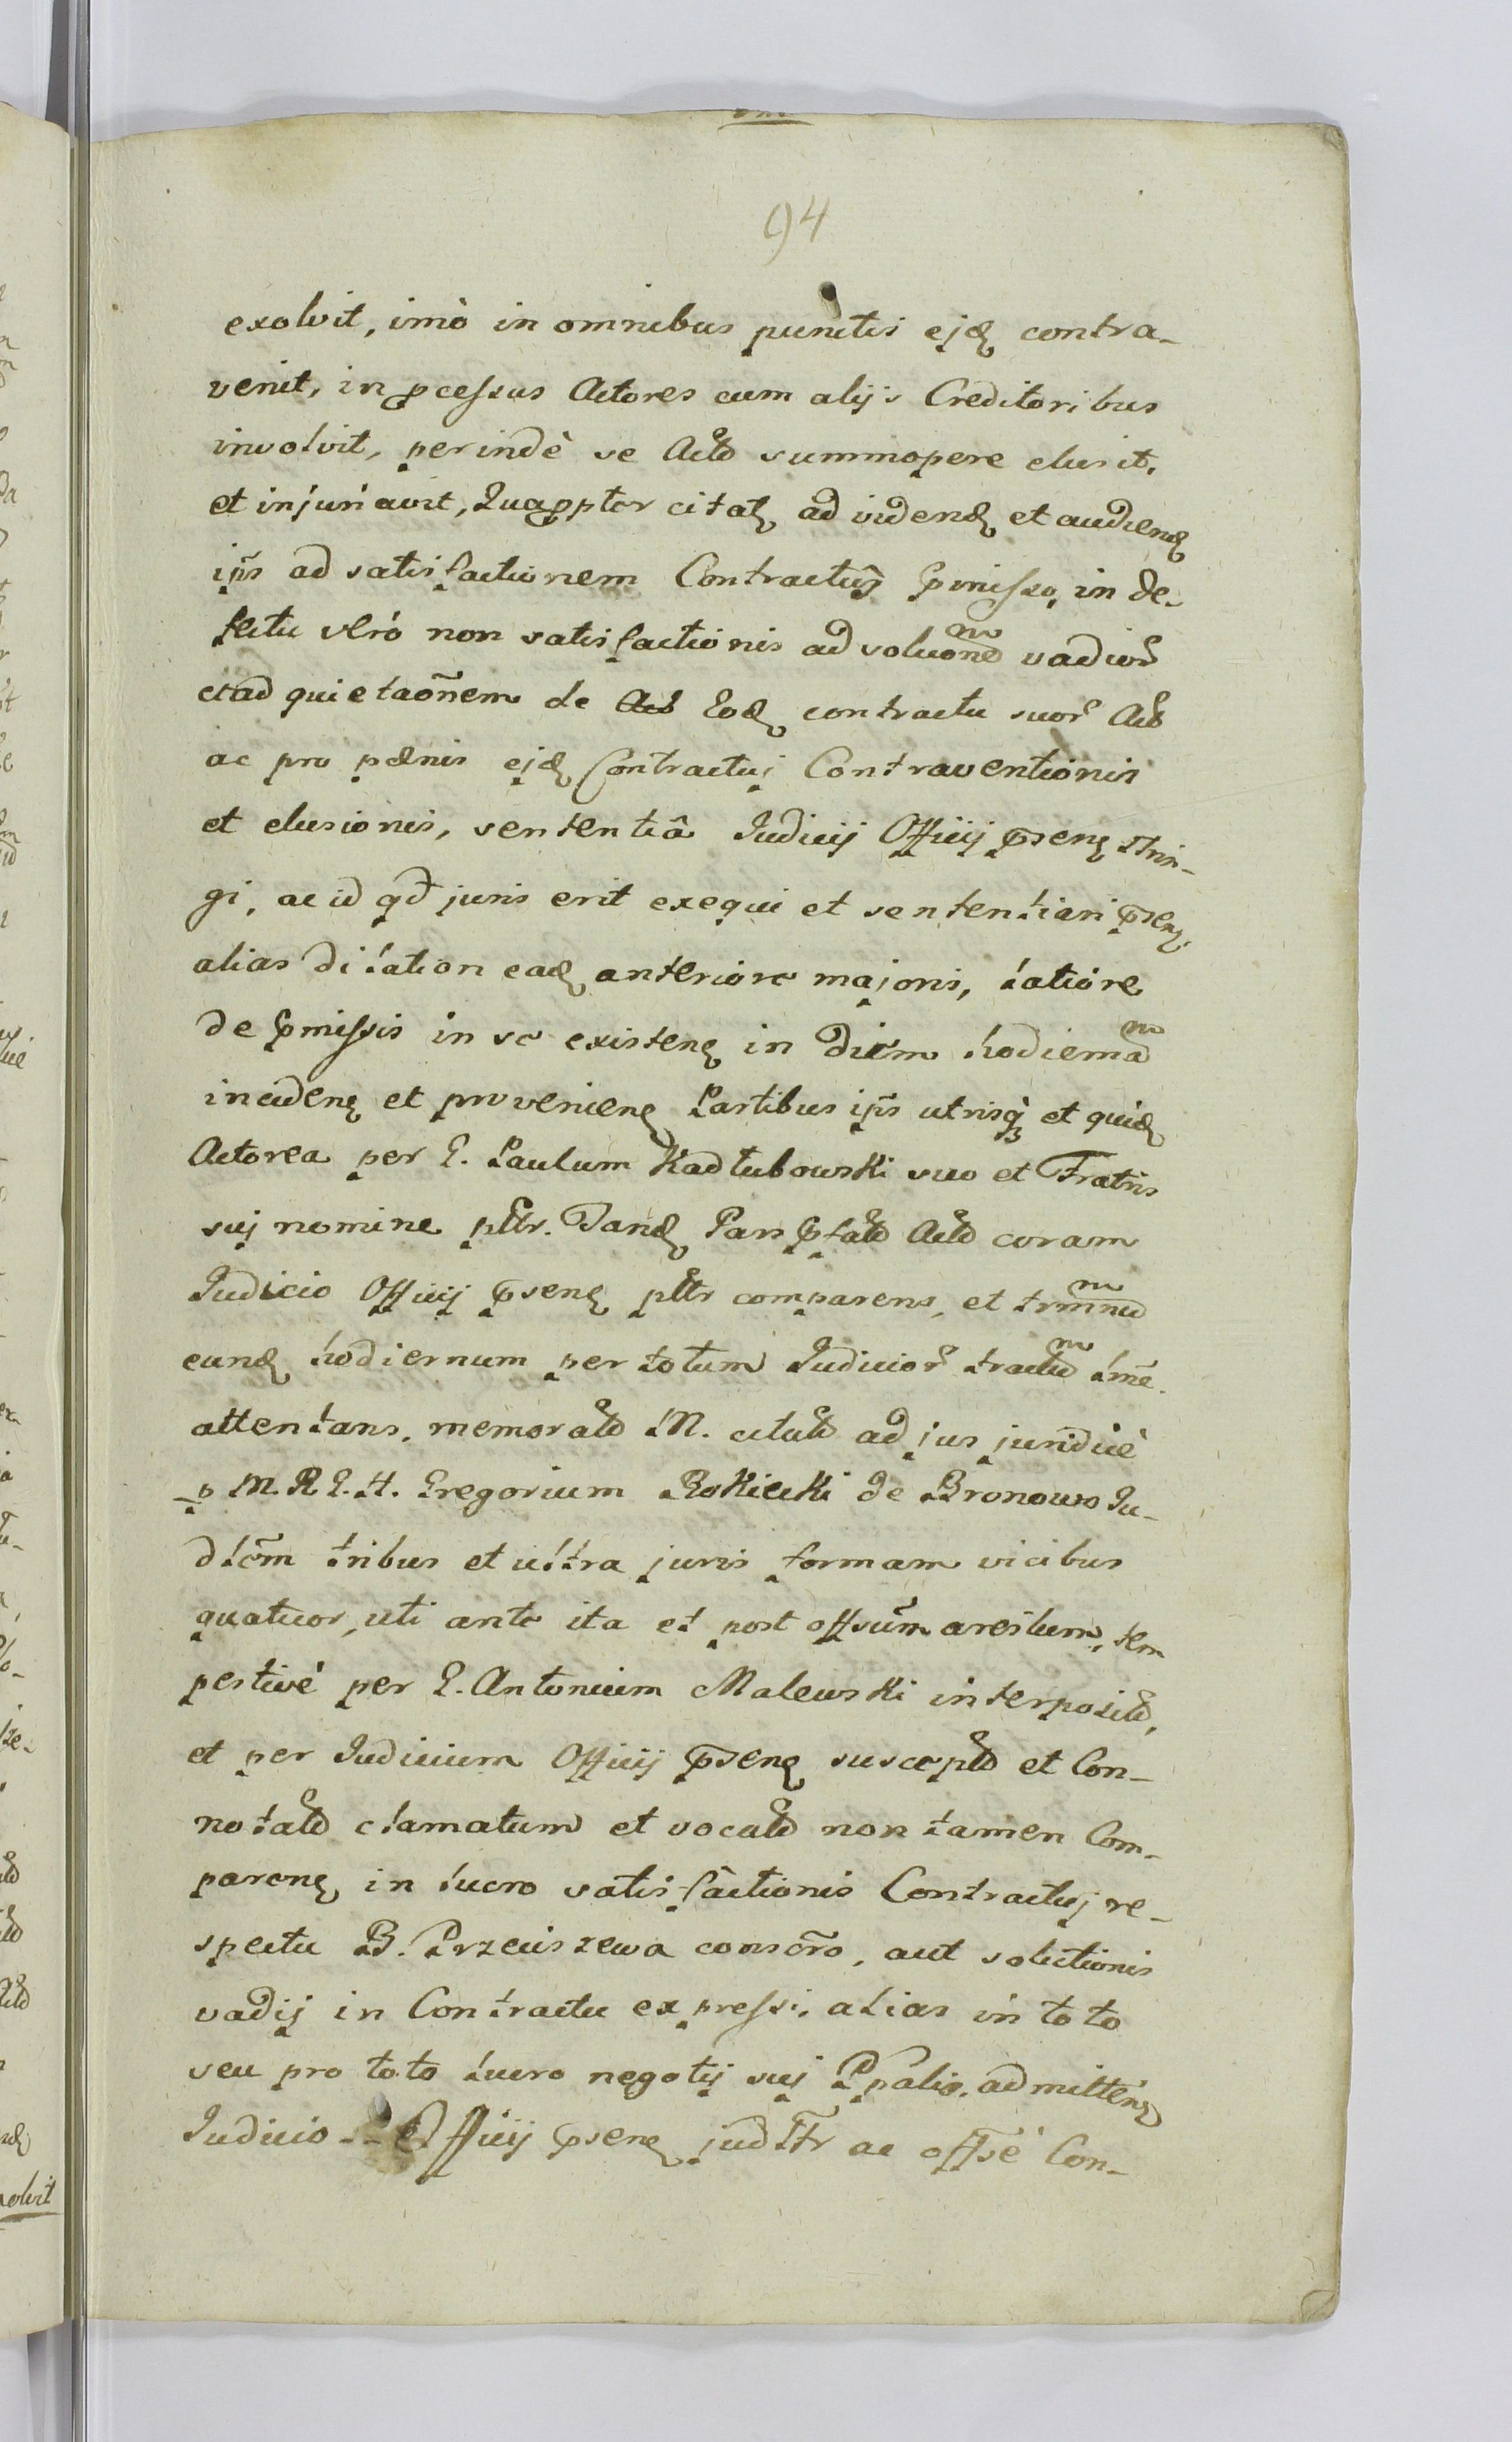 94
exolvit, imò in omnibus punctis ejd contra-
venit, in pcessus Actores cum alijs Creditoribus
involvit, perindè se Actd summopere elusit,
et injuriavit, Quapptor citat ad vidend et audiend
ips ad satisfactionem Contractus pmisso, in de-
fectu vero non satisfactionis ad soluonem vadior
et ad quietaõnem de Eod contractu suor Act
ac pro pænis ejd Contractuj Contraventionis
et elusionis, sententiâ Judicij Officij psens strin-
gi, ac id qd juris erit exequi et sententiari psens.
alias Citation ead anteriore majoris, latiore
de pmissis in se existens in diem hodiernam
incidens et proveniens Partibus ips utrisq et quid
Actorea per G. Paulum Kadłubowski suo et Fratris
suj nomine pltr. Tand Pars ptatd Actd coram
Judicio Officij psens pltr comparens, et trminum
eund hodiernum per totum Judicior tractum lme
attentans, memoratd M. citatd ad jus juridicè
p M. R G. H. Gregorium Rokicki de Bronowo Ju-
dlem tribus et ultra juris formam vicibus
quatuor, uti ante ita et post offsum arestum, tem
pestivè per G. Antonium Malewski interpositd,
et per Judicium Officij psens susceptd et Con-
notatd clamatum et vocatd non tamen Com-
parens in lucro satisfactionis Contractuj re-
spectu B. Przeciszewa conscro, aut solutionis
vadij in Contractu expressi, alias in toto
seu pro toto lucro negotij suj Ppalis, admittens
Judicio -- Officij psens judltr ac offsè Con-
solvit